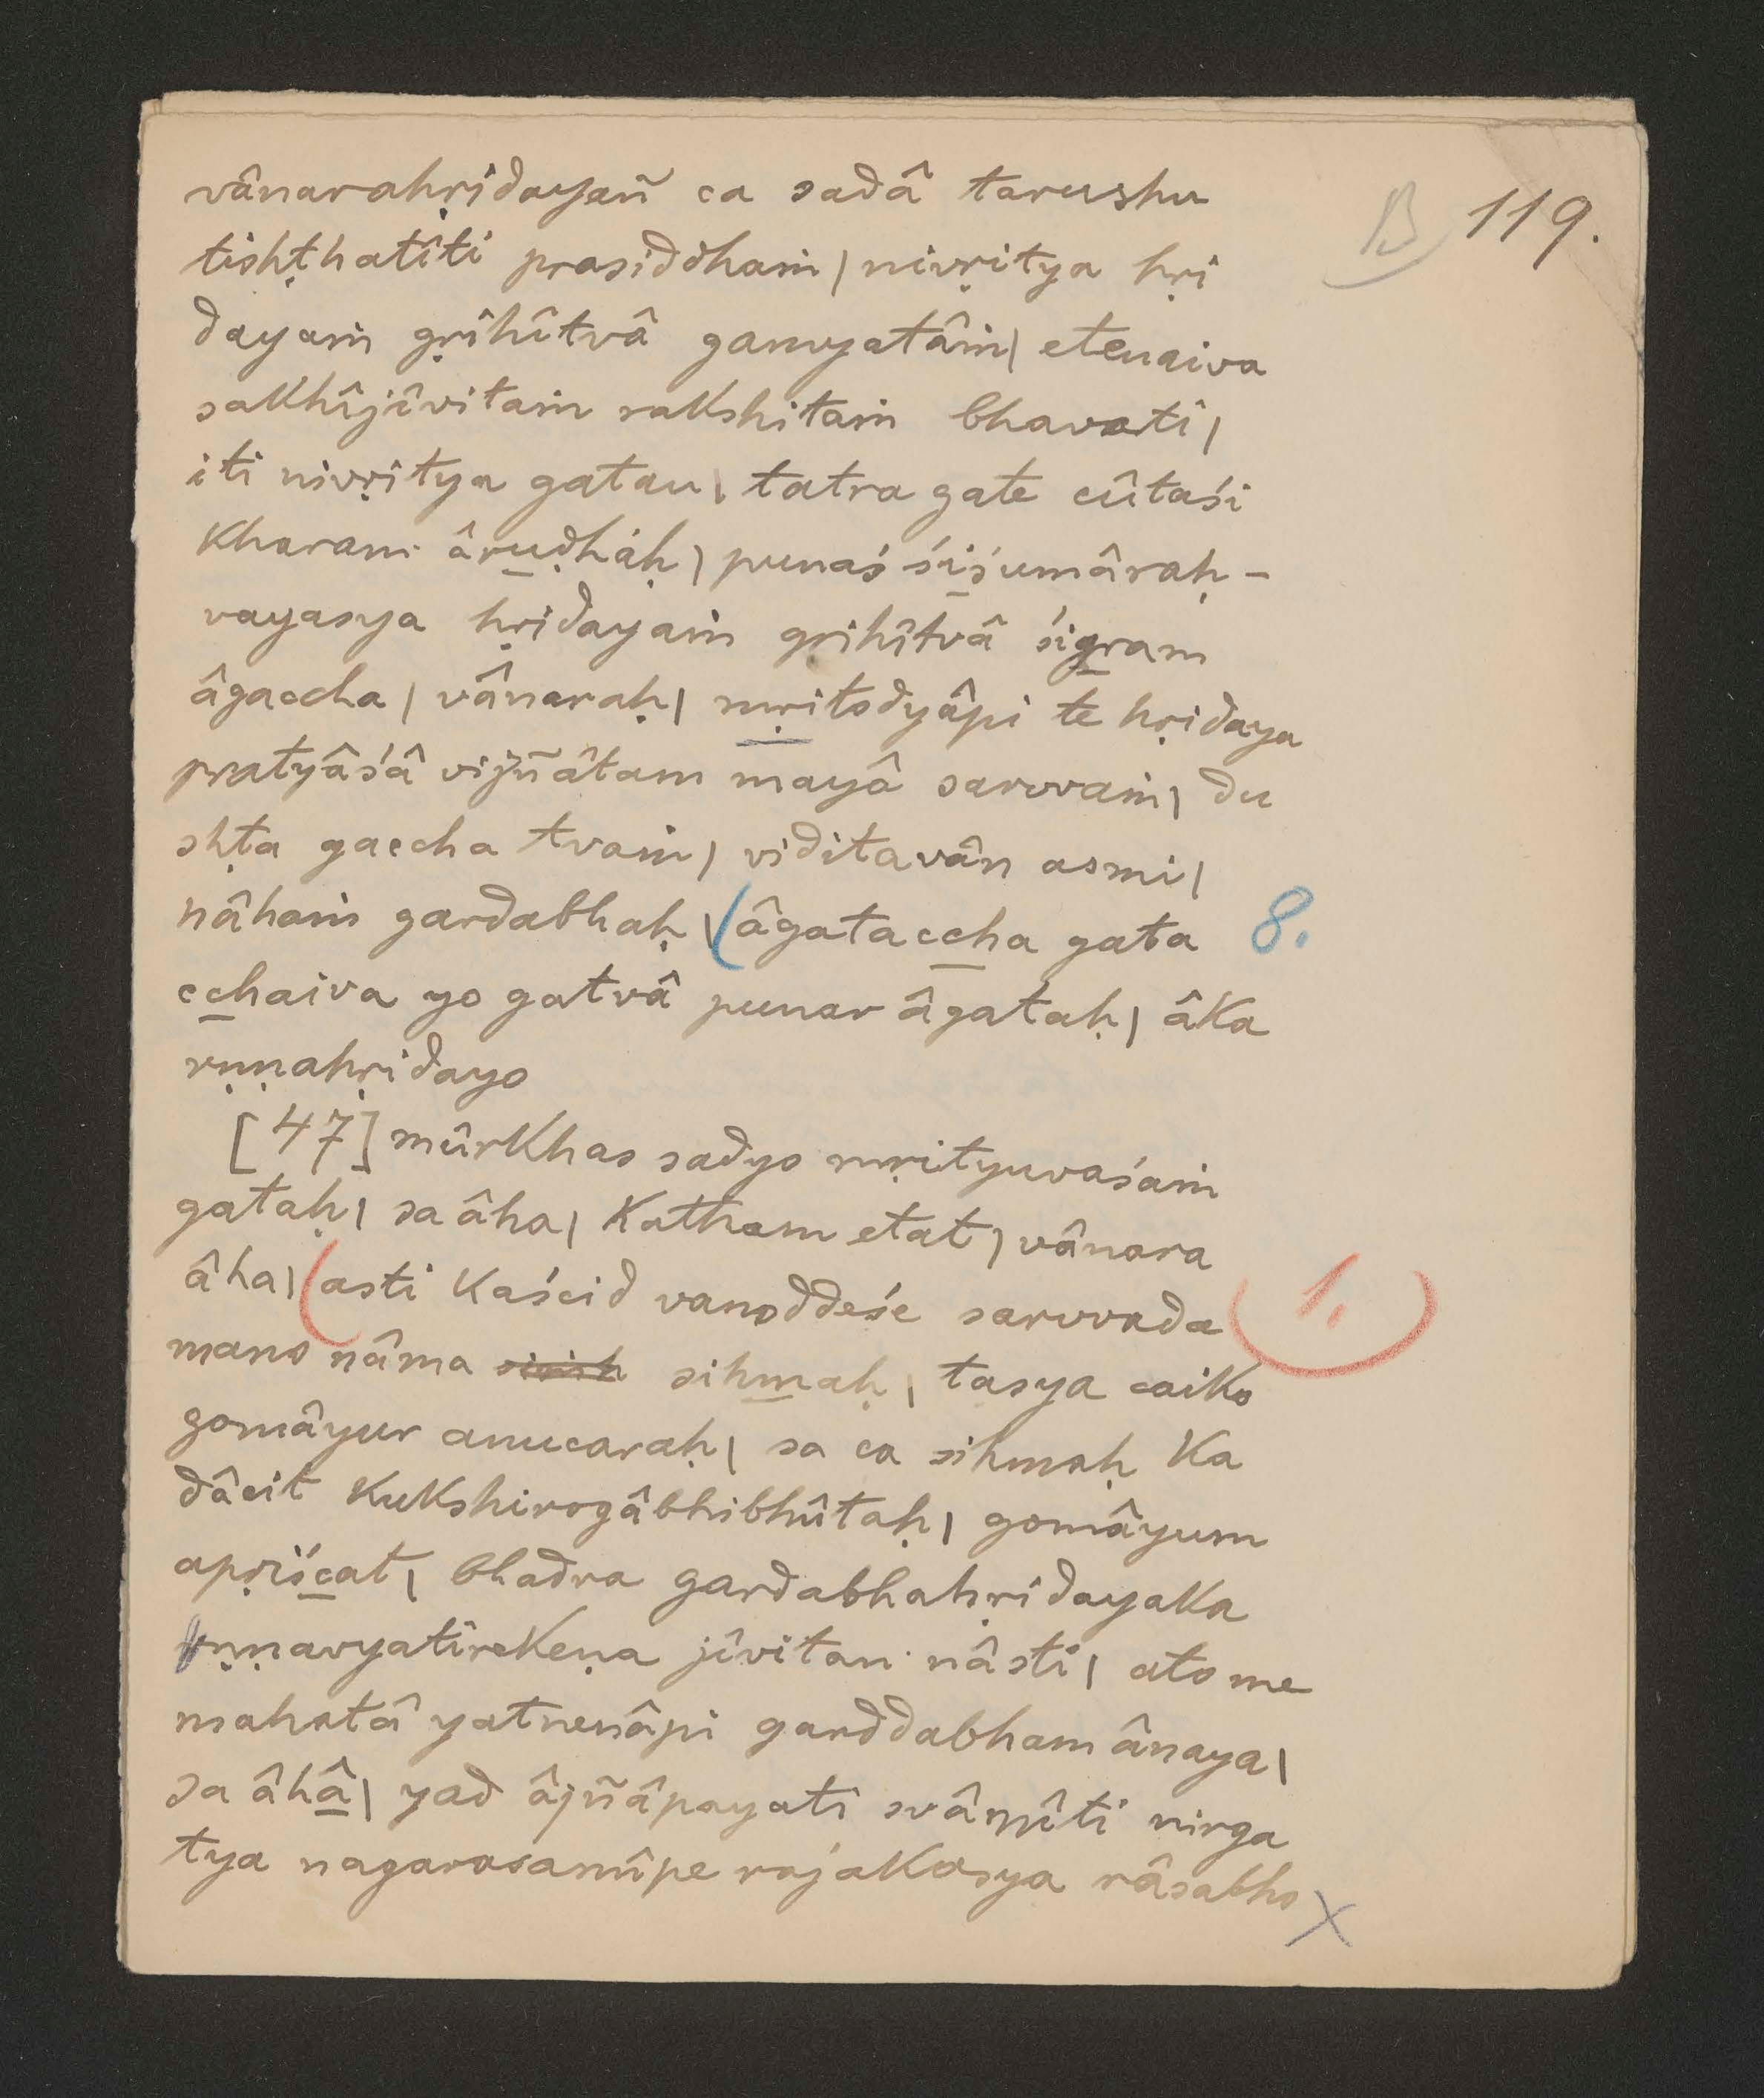 B 119.
vânarahṛidayañ ca sadâ tarushu
tishṭhatîti prasiddhaṁ | nivṛitya hṛi
dayaṁ gṛihîtvâ gamyatâṁ | etenaiva
sakhîjîvitaṁ rakshitaṁ bhavati |
iti nivṛitya gatau | tatra gate cûtaśi
kharam âruḍhaḥ | punaś śiśumâraḥ -
vayasya hṛidayaṁ gṛihîtvâ śigram
âgaccha | vânaraḥ | mṛitodyâpi te hṛidaya
pratyâśâ vijñâtam mayâ sarvvaṁ | du
shṭa gaccha tvaṁ | viditavân asmi |
nâhaṁ gardabhaḥ | (âgataccha gata 8.
cchaiva yo gatvâ punar âgataḥ | âka
rṇṇahṛidayo
[47] mûrkhas sadyo mṛityuvaśaṁ
gataḥ | sa âha | katham etat | vânara
âha | (asti kaścid vanoddeśe sarvvada 1.
mano nâma sihmaḥ | tasya caiko
gomâyur anucaraḥ | sa ca sihmaḥ ka
dâcit kukshirogâbhibhûtaḥ | gomâyum
apṛiścat | bhadra gardabhahṛidayaka
rṇṇavyatirekeṇa jîvitan nâsti | ato me
mahatâ yatnenâpi garddabham ânaya |
sa âhâ | yad âjñâpayati svâmîti nirga
tya nagarasamîpe rajakasya râsabho X